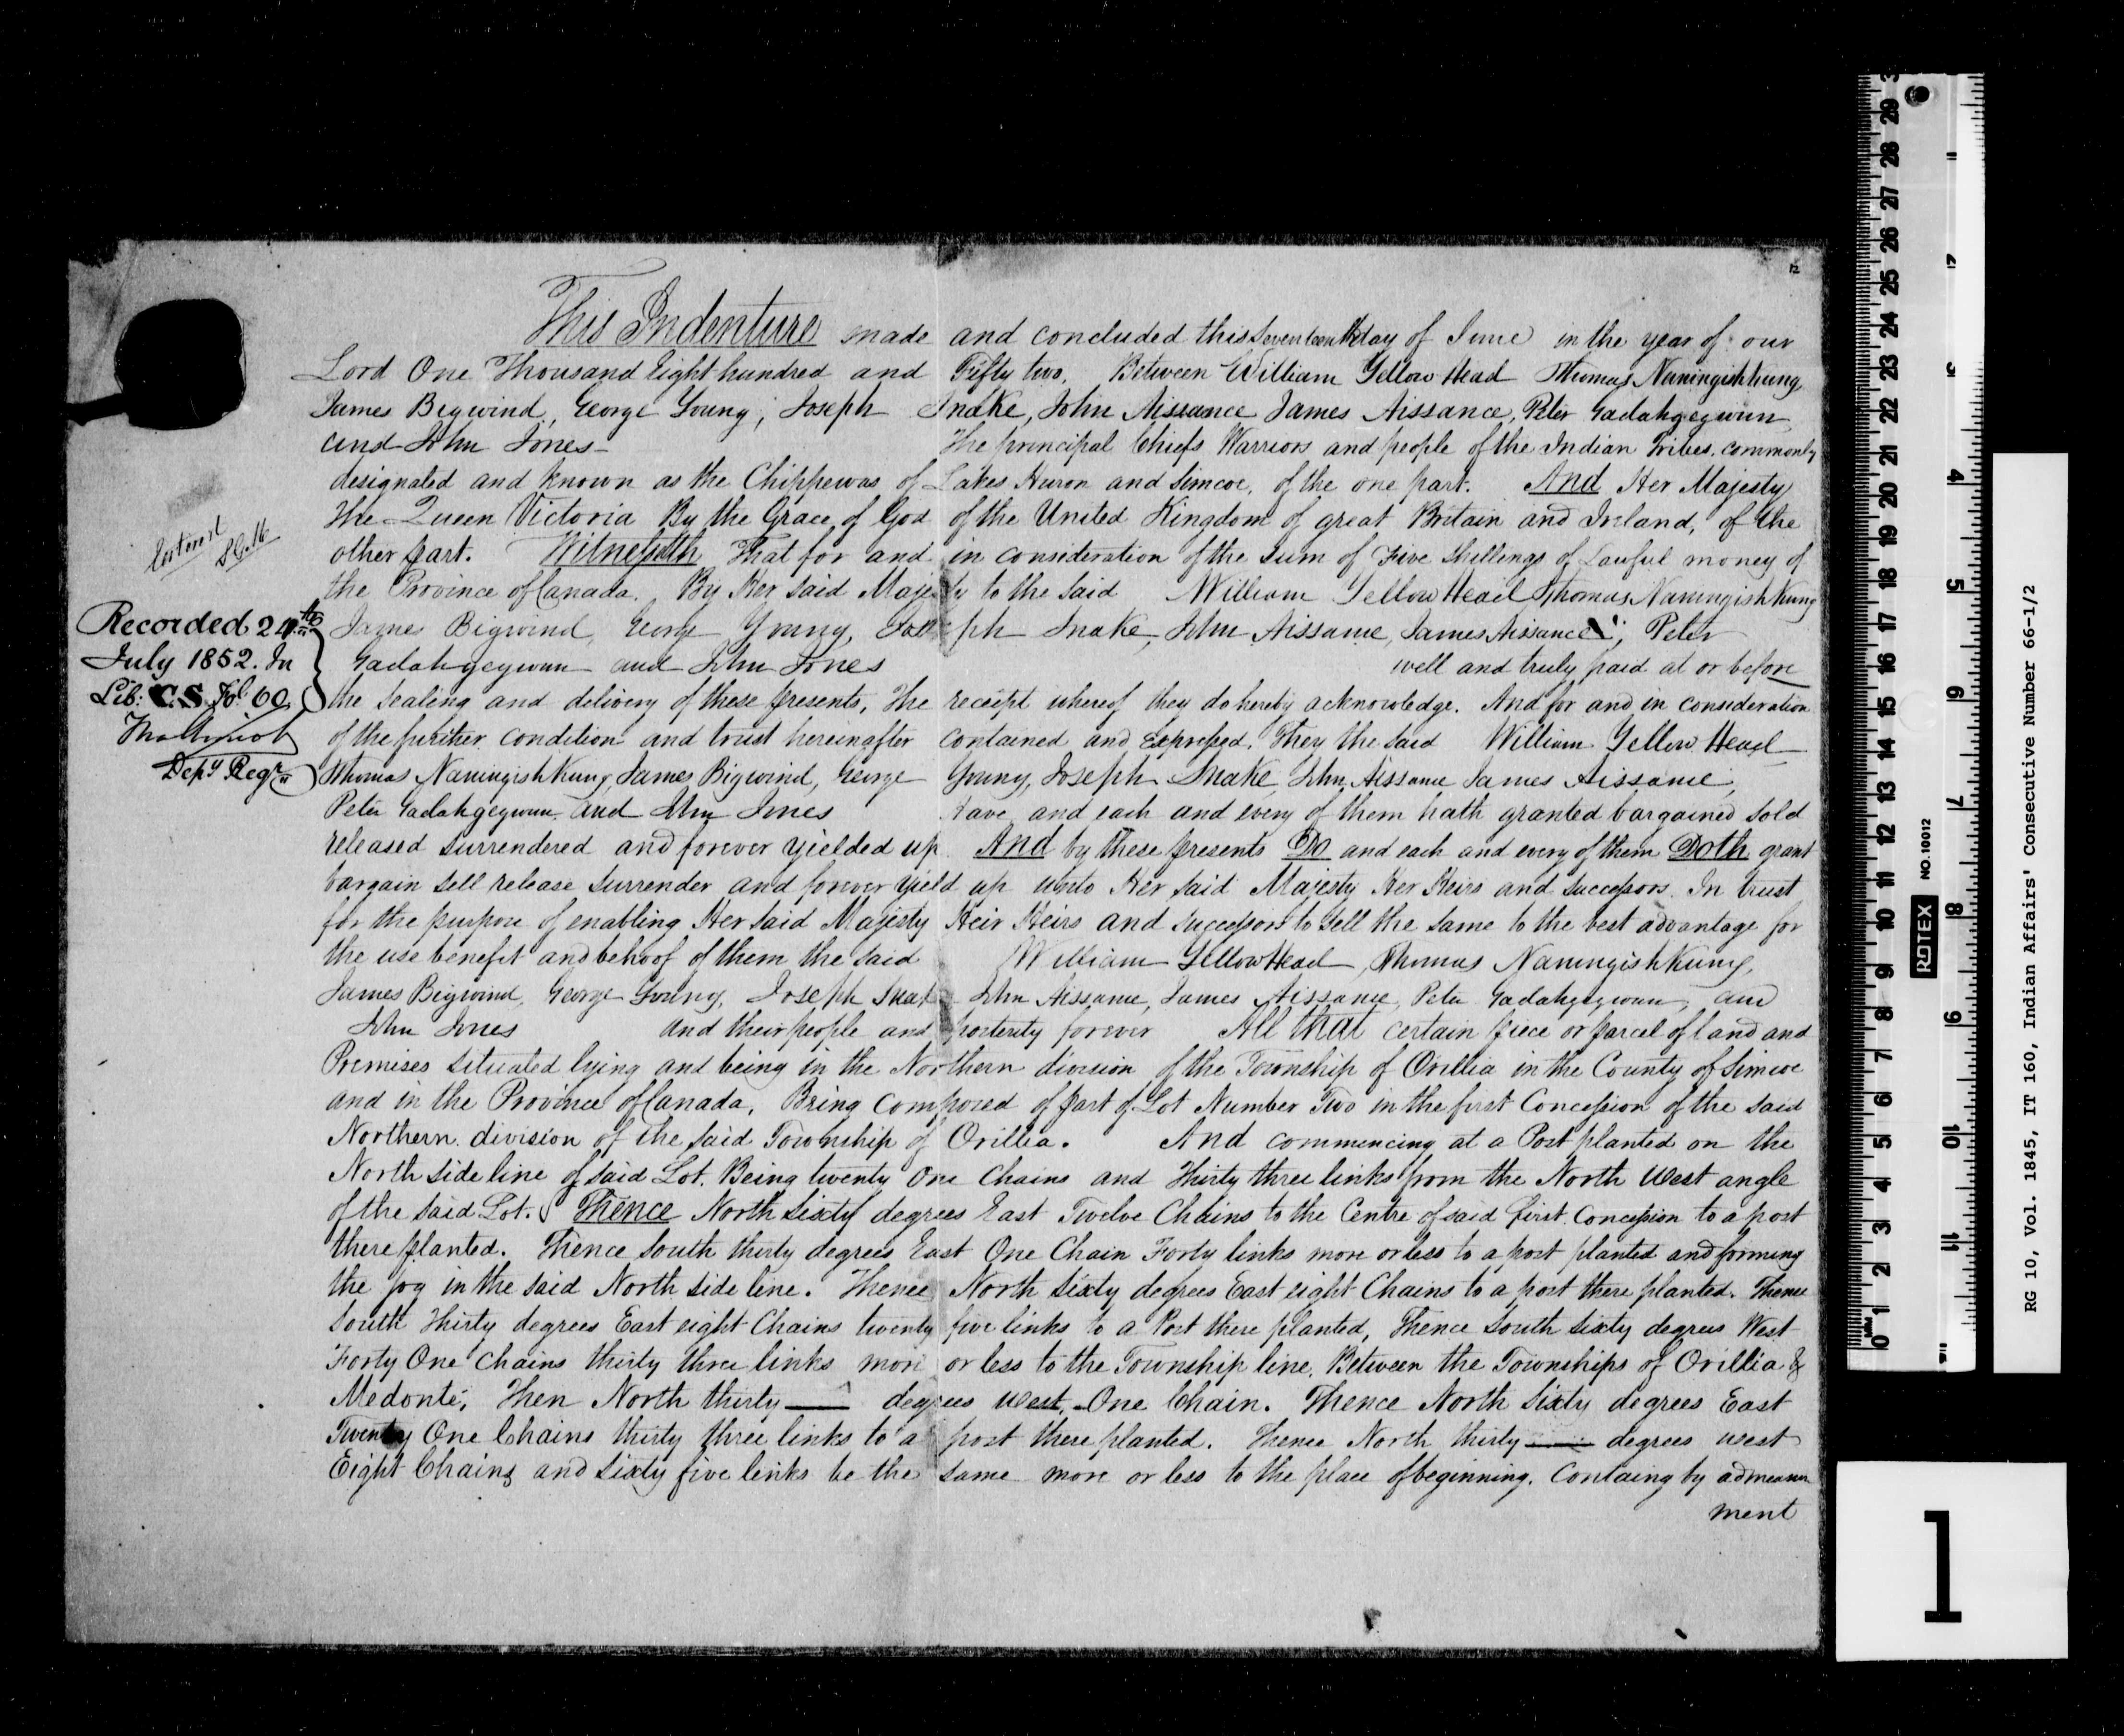 12
This Indenture made and concluded this Seventeenth day of June in the year of our
Lord One Thousand Eight hundred and Fifty two, Between William Yellow Head Thomas Naningishkung
James Bigwind, George Young, Joseph Snake, John Aissance James Aissance, Peter Gadahgegwun
and John Jones The principal Chiefs Warriors and people of the Indian Tribes commonly
designated and known as the Chippewas of Lakes Huron and Simcoe, of the one part. And Her Majesty
The Queen Victoria By the Grace of God of the United Kingdom of great Britain and Ireland, of the
other part. Witnesseth That for and in consideration of the sum of Five Shillings of Lawful money of
the Province of Canada. By Her said Majesty to the said William Yellow Head Thomas Naningishkung
James Bigwind, George Young, Joseph Snake, John Aissance, James Aissance, Peter
Gadahgegwun and John Jones well and truly paid at or before
the sealing and delivery of these presents, The receipt whereof they do hereby acknowledge. And for and in consideration
of the further condition and trust hereinafter contained and Expressed. They the said William Yellow Head
Thomas Naningishkung, James Bigwind, George Young, Joseph Snake John Aissance James Aissance,
Peter Gadahgegwun and John Jones have and each and every of them hath granted bargained sold
released surrendered and forever yielded up And by these presents Do and each and every of them Doth grant
bargain sell release surrender and forever yield up unto Her said Majesty Her Heirs and successors In trust
for the purpose of enabling Her said Majesty Heir Heirs and successors to sell the same to the best advantage for
the use benefit and behoof of them the said William Yellow Head, Thomas Naningishkung,
James Bigwind, George Young, Joseph Snake John Aissance, James Aissance, Peter Gadahgegwun, and
John Jones and their people and posterity forever All that certain piece or parcel of land and
Premises situated lying and being in the Northern division of the Township of Orillia in the County of Simcoe
and in the Province of Canada. Being composed of part of Lot Number Two in the first Concession of the said
Northern division of the said Township of Orillia. And commencing at a Post planted on the
North side line of said Lot. Being twenty One Chains and Thirty three links from the North West angle
of the said Lot. Thence North Sixty degrees East Twelve Chains to the Centre of said first Concession to a post
there planted. Thence South thirty degrees East One Chain Forty links more or less to a post planted and forming
the jog in the said North side line. Thence North Sixty degrees East eight Chains to a post there planted. Thence
South Thirty degrees East eight Chains twenty five links to a Post there planted, Thence South Sixty degrees West
Forty One Chains thirty three links more or less to the Township line, Between the Townships of Orillia &
Medonte; Then North thirty degrees west One Chain. Thence North Sixty degrees East
Twenty One Chains thirty three links to a post there planted. Thence North thirty degrees west
Eight Chains and sixty five links be the same more or less to the place of beginning. Containg by admeasure
ment
Recorded 24th
July 1852. In
Lib. C.S. Fol. 60
Depy Regr
RG 10, Vol. 1845, IT 160, Indian Affairs' Consecutive Number 66-1/2
ROTEX NO. 10012
1